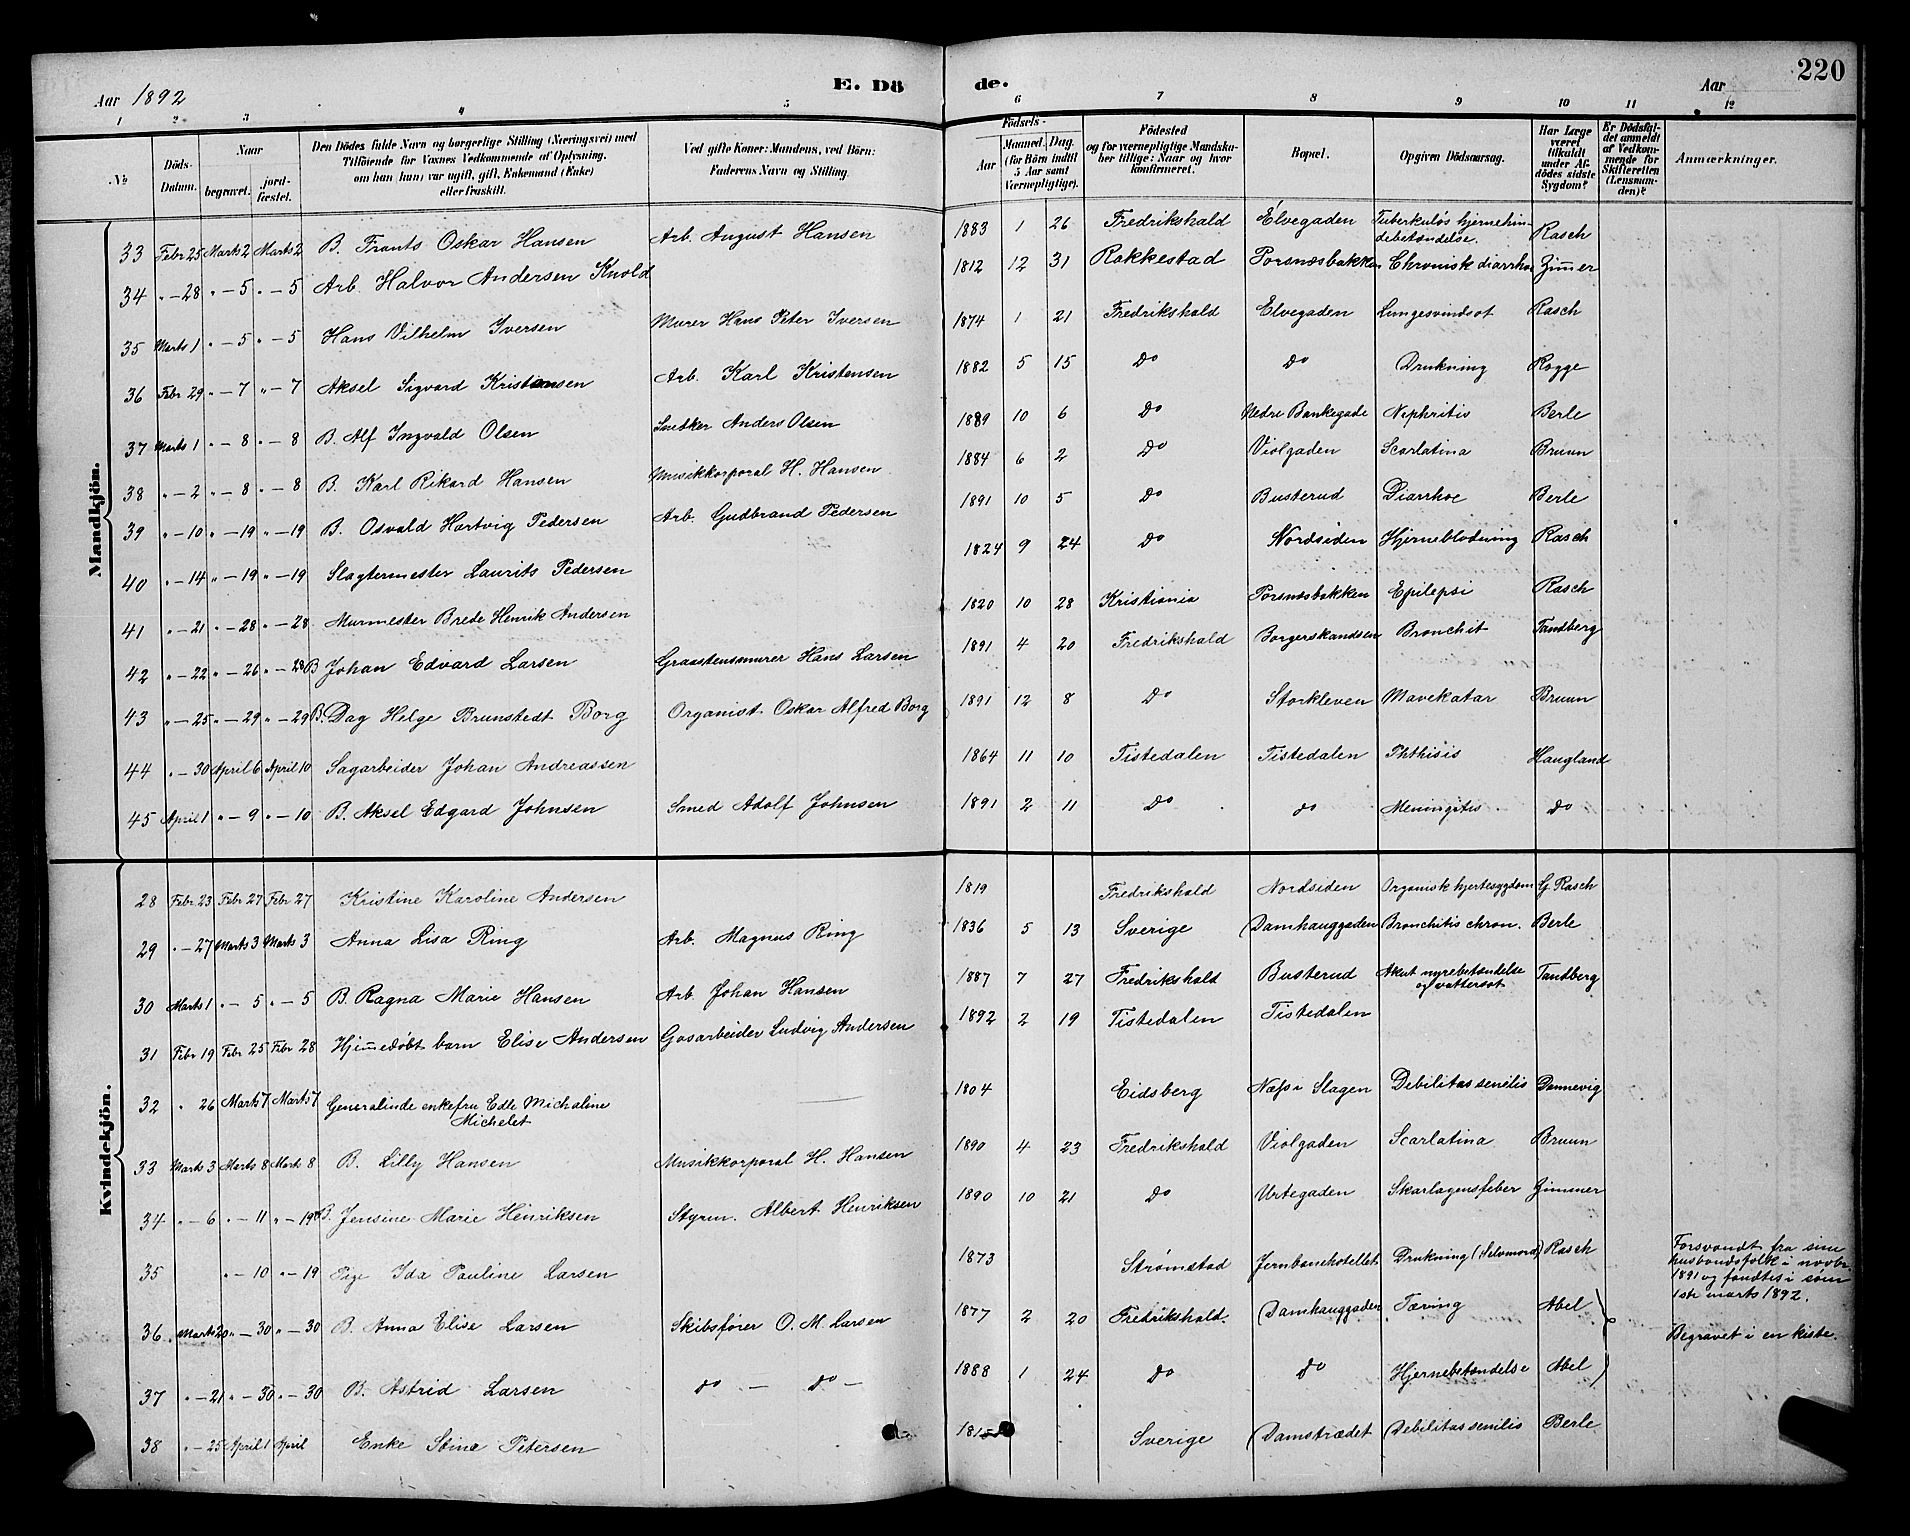 220
Aar 1892 E. Dö de. Aar
1 2 3 4 5 6 7 8 9 10 11 12
No Döds-Datum. Naar begravet. jord-fæstet. Den Dödes fulde Navn og borgerlige Stilling (Næringsvei) med Tilföiende for Voxnes Vedkommende af Oplysning, om han (hun) var ugift, gift, Enkemand (Enke) eller fraskilt. Ved gifte Koner: Mandens, ved Börn: Faderens Navn og Stilling. Födsels- Aar Maaned. Dag. (for Börn indtil 5 Aar samt Værnepligtige). Födested og for værnepligtige Mandskaber tillige: Naar og hvor konfirmeret. Bopæl. Opgiven Dödsaarsag. Har Læge været tilkaldt under Afdödes sidste Sygdom? Er Dödsfaldet anmeldt af Vedkommende for Skifteretten (Lensmanden)? Anmærkninger.
Mandkjön.
33 Febr 25 Marts 2 Marts 2 B. Frants Oskar Hansen Arb. August Hansen 1883 1 26 Fredrikshald Elvegaden Tuberkuløs hjernehindebetændelse. Rasch
34 " – 28 " – 5 " – 5 Arb. Halvor Andersen Knold 1812 12 31 Rakkestad Porsnæsbakken Chronisk diarrhoe Zimer
35 Marts 1 " – 5 " – 5 Hans Vilhelm Iversen Murer Hans Peter Iversen 1874 1 21 Fredrikshald Elvegaden Lungesvindsot Rasch
36 Febr 29 " – 7 " – 7 Aksel Sigvard Kristensen Arb. Karl Kristensen 1882 5 15 Do Do Drukning Rogge
37 Marts 1 " – 8 " – 8 B. Alf Ingvald Olsen Snedker Anders Olsen 1889 10 6 Do Nedre Bankegade Nephritis Berle
38 " – 2 " – 8 " – 8 B. Karl Rikard Hansen Musikkorporal H. Hansen 1884 6 2 Do Violgaden Scarlatina Bruun
39 " – 10 " – 19 " – 19 B. Osvald Hartvig Pedersen Arb. Gudbrand Pedersen 1891 10 5 Do Busterud Diarrhoe Berle
40 " – 14 " – 19 " – 19 Slagtermester Laurits Pedersen 1824 9 24 Do Nordsiden Hjerneblødning Rasch
41 " – 21 " – 28 " – 28 Murmester Brede Henrik Andersen 1820 10 28 Kristiania Porsnæsbakken Epilepsi Rasch
42 " – 22 " – 26 " – 28 B Johan Edvard Larsen Graastensmurer Hans Larsen 1891 4 20 Fredrikshald Borgerskandsen Bronchit Tandberg
43 " – 25 " – 29 " – 29 B. Dag Helge Brunstedt Borg Organist Oskar Alfred Borg 1891 12 8 Do Storkleven Mavekatar Bruun
44 " – 30 April 6 April 10 Sagarbeider Johan Andreassen 1864 11 10 Tistedalen Tistedalen Phthisis Haugland
45 April 1 " – 9 " – 10 B. Aksel Edgard Johnsen Smed Adolf Johnsen 1891 2 11 Do Do Meningitis Do
Kvindekjön.
28 Febr 23 Febr 27 Febr 27 Kristine Karoline Andersen 1819 Fredrikshald Nordsiden Organisk hjertesygdom G. Rasch
29 " – 27 Marts 3 Marts 3 Anna Lisa Ring Arb. Magnus Ring 1836 5 13 Sverige Damhauggaden Bronchitis chron. Berle
30 Marts 1 " – 5 " – 5 B. Ragna Marie Hansen Arb. Johan Hansen 1887 7 27 Fredrikshald Busterud Akut nyrebetændelse og vattersot Tandberg
31 Febr 19 Febr 25 Febr 28 Hjemmedøbt barn Elise Andersen Gasarbeider Ludvig Andersen 1892 2 19 Tistedalen Tistedalen
32 " 26 Marts 7 Marts 7 Generalinde enkefru Edle Michaline Michelet 1804 Eidsberg Næs i Slagen Debilitas senilis Dannevig
33 Marts 3 Marts 8 Marts 8 B. Lilly Hansen Musikkorporal H. Hansen 1890 4 23 Fredrikshald Violgaden Scarlatina Bruun
34 " – 6 " – 11 " – 19 B. Jensine Marie Henriksen Styrm. Albert Henriksen 1890 10 21 Do Urtegaden Skarlagensfeber Zimmer
35 " – 10 " – 19 Pige Ida Pauline Larsen 1873 Strømstad Jernbanehotellet Drukning (Selvmord) Rasch Forsvandt fra sine husbondsfolk i novbr. 1891 og fandtes i søen 1ste marts 1892.
36 Marts 20 " – 30 " – 30 B. Anna Elise Larsen Skibsfører O. M. Larsen 1877 2 20 Fredrikshald. Damhauggaden Tæring Abel Begravet i en kiste.
37 " – 21 " – 30 " – 30 B. Astrid Larsen Do – Do – 1888 1 24 Do Do Hjernebetændelse Abel
38 " – 25 April 1 April Enke Stina Petersen Sverige Damstrædet Debilitas senilis Berle